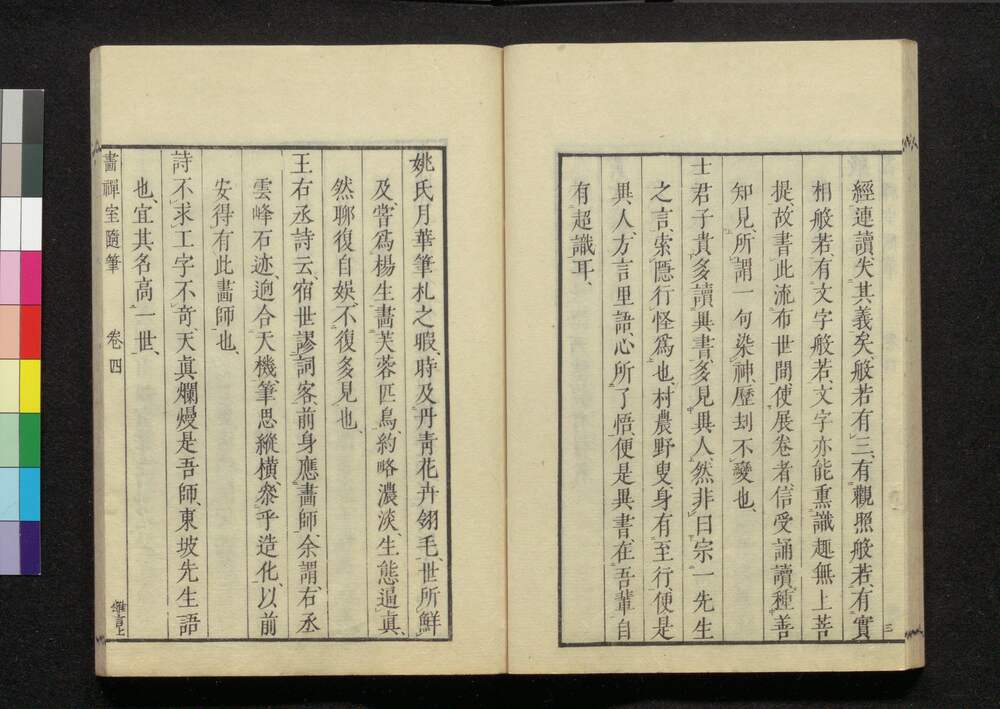 經連讀失其義矣、般若有三、有觀照般若、有實
相般若、有文字般若、文字亦能熏識趣無上菩
提、故書此流布世間、使展卷者、信受誦讀、種善
知見、所謂一句染神、歷刧不變也、
士君子貴多讀異書、多見異人、然非曰宗一先生
之言、索隱行怪爲也、村農野叟、身有至行、便是
異人、方言里語、心所了悟、便是異書、在吾輩自
有超識耳、
三
姚氏月華筆札之暇、時及丹青花卉翎毛、世所鮮
及、嘗爲楊生畵芙蓉匹鳥、約略濃淡、生態逼眞、
然聊復自娛、不復多見也、
王右丞詩云、宿世謬詞客、前身應畵師、余謂右丞
雲峰石迹、迥合天機、筆思縱橫、叅乎造化、以前
安得有此畵師也、
詩不求工、字不竒、天眞爛熳是吾師、東坡先生語
也、宜其名高一世、
畵禪室隨筆 卷四 雜言上